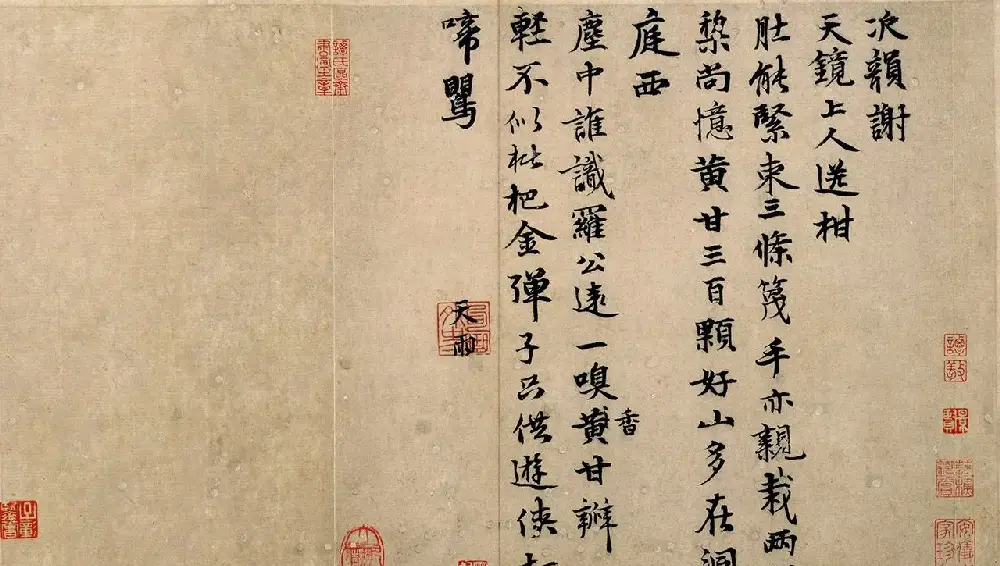 次韻謝
天鏡上人送柑
肚能緊束三條篾手亦親栽兩
棃尚憶黄甘三百顆好山多在洞
庭西
塵中誰識羅公遠一嗅黄甘瓣
香
軽不似枇杷金弹子只供遊俠
啼鸎
天雨